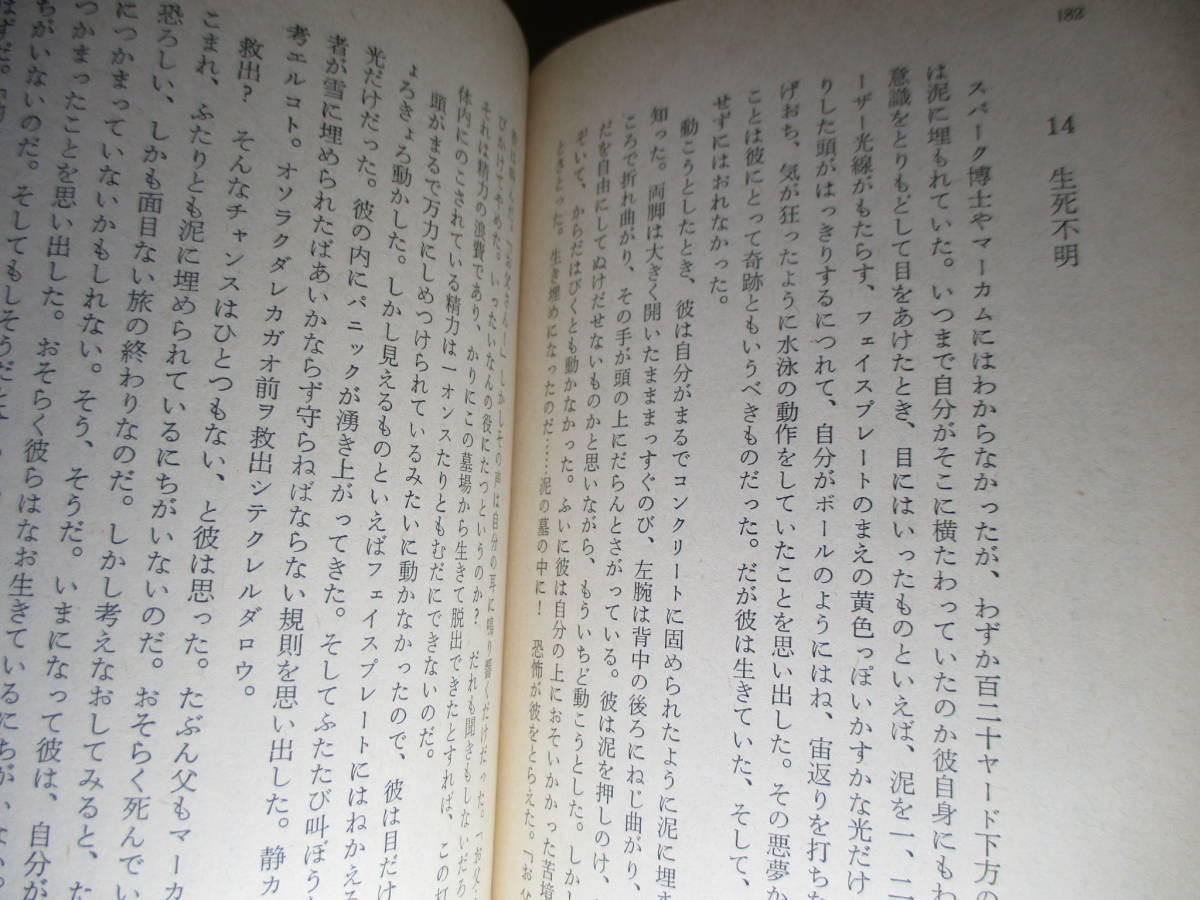 182
14 生死不明
スパーク博士やマーカムにはわからなかったが、わずか百二十ヤード下方の
は泥に埋もれていた。いつまで自分がそこに横たわっていたのか彼自身にもわ
意識をとりもどして目をあけたとき、目にはいったものといえば、泥を一、二
ーザー光線がもたらす、フェイスプレートのまえの黄色っぽいかすかな光だけ
りした頭がはっきりするにつれて、自分がボールのようにはね、宙返りを打ちな
げおち、気が狂ったように水泳の動作をしていたことを思い出した。その悪夢か
ことは彼にとって奇跡ともいうべきものだった。だが彼は生きていた、そして、
せずにはおれなかった。
動こうとしたとき、彼は自分がまるでコンクリートに固められたように泥に埋ま
知った。両脚は大きく開いたまままっすぐのび、左腕は背中の後ろにねじ曲がり、
ころで折れ曲がり、その手が頭の上にだらんとさがっている。彼は泥を押しのけ、
だを自由にしてぬけだせないものかと思いながら、もういちど動こうとした。しかし
ぞいて、からだはびくとも動かなかった。ふいに彼は自分の上におそいかかった苦境
とさとった。生き埋めになったのだ……泥の墓の中に！ 恐怖が彼をとらえた。「お父
「お父さん！」しかしその声は自分の耳に鳴り響くだけだった。「お父
びかけてやめた。いったいなんの役にたつというのか？ だれも聞きもしないだろ
それは精力の浪費であり、かりにこの墓場から生きて脱出できたとすれば、この打
体内にのこされている精力は一オンスたりともむだにできないのだ。
頭がまるで万力にしめつけられているみたいに動かなかったので、彼は目だけ
ょろきょろ動かした。しかし見えるものといえばフェイスプレートにはねかえる
光だけだった。彼の内にパニックが湧き上がってきた。そしてふたたび叫ぼうと
者が雪に埋められたばあいかならず守らねばならない規則を思い出した。静カ
考エルコト。オソラクダレカガオ前ヲ救出シテクレルダロウ。
救出？ そんなチャンスはひとつもない、と彼は思った。たぶん父もマーカ
こまれ、ふたりとも泥に埋められているにちがいないのだ。おそらく死んでい
恐ろしい、しかも面目ない旅の終わりなのだ。しかし考えなおしてみると、た
につかまっていないかもしれない。そう、そうだ。いまになって彼は、自分が
つかまったことを思い出した。おそらく彼らはなお生きているにちがいない。
ちがいないのだ。そしてもしそうだと
はずだ。